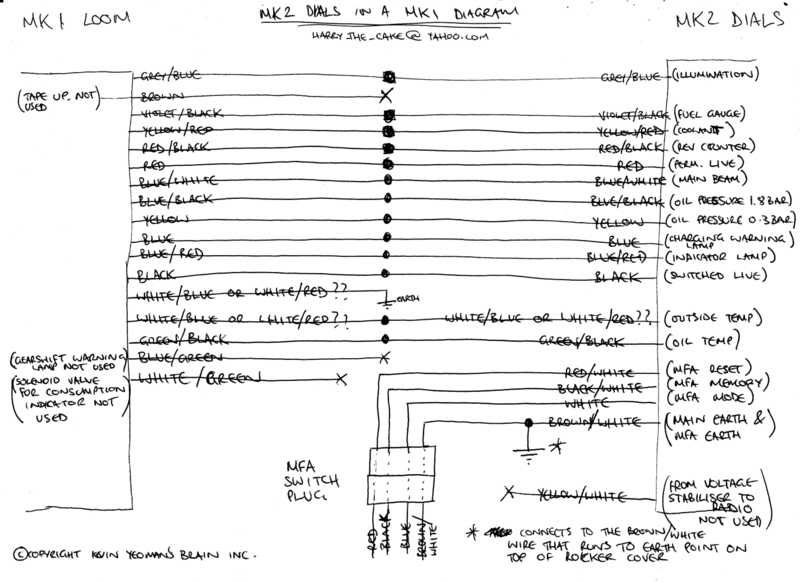 MK1 LOOM
MK2 DIALS IN A MK1 DIAGRAM
HARRY_THE_CAKE@YAHOO.COM
MK2 DIALS
GREY/BLUE GREY/BLUE (ILLUMINATION)
(TAPE UP. NOT USED) BROWN
VIOLET/BLACK VIOLET/BLACK (FUEL GAUGE)
YELLOW/RED YELLOW/RED (COOLANT)
RED/BLACK RED/BLACK (REV COUNTER)
RED RED (PERM. LIVE)
BLUE/WHITE BLUE/WHITE (MAIN BEAM)
BLUE/BLACK BLUE/BLACK (OIL PRESSURE 1.8BAR)
YELLOW YELLOW (OIL PRESSURE 0.3BAR)
BLUE BLUE (CHARGING WARNING LAMP)
BLUE/RED BLUE/RED (INDICATOR LAMP)
BLACK BLACK (SWITCHED LIVE)
WHITE/BLUE OR WHITE/RED?? EARTH
WHITE/BLUE OR WHITE/RED?? WHITE/BLUE OR WHITE/RED?? (OUTSIDE TEMP)
GREEN/BLACK GREEN/BLACK (OIL TEMP)
(GEARSHIFT WARNING LAMP NOT USED) BLUE/GREEN
(SOLENOID VALVE FOR CONSUMPTION INDICATOR NOT USED) WHITE/GREEN
RED/WHITE (MFA RESET)
BLACK/WHITE (MFA MEMORY)
WHITE (MFA MODE)
BROWN/WHITE (MAIN EARTH & MFA EARTH)
*
MFA
SWITCH
PLUG
RED
BLACK
BLUE
BROWN/
WHITE
YELLOW/WHITE (FROM VOLTAGE STABILISER TO RADIO NOT USED)
* CONNECTS TO THE BROWN/WHITE
WIRE THAT RUNS TO EARTH POINT ON
TOP OF ROCKER COVER
©COPYRIGHT KEVIN YEOMAN'S BRAIN INC.